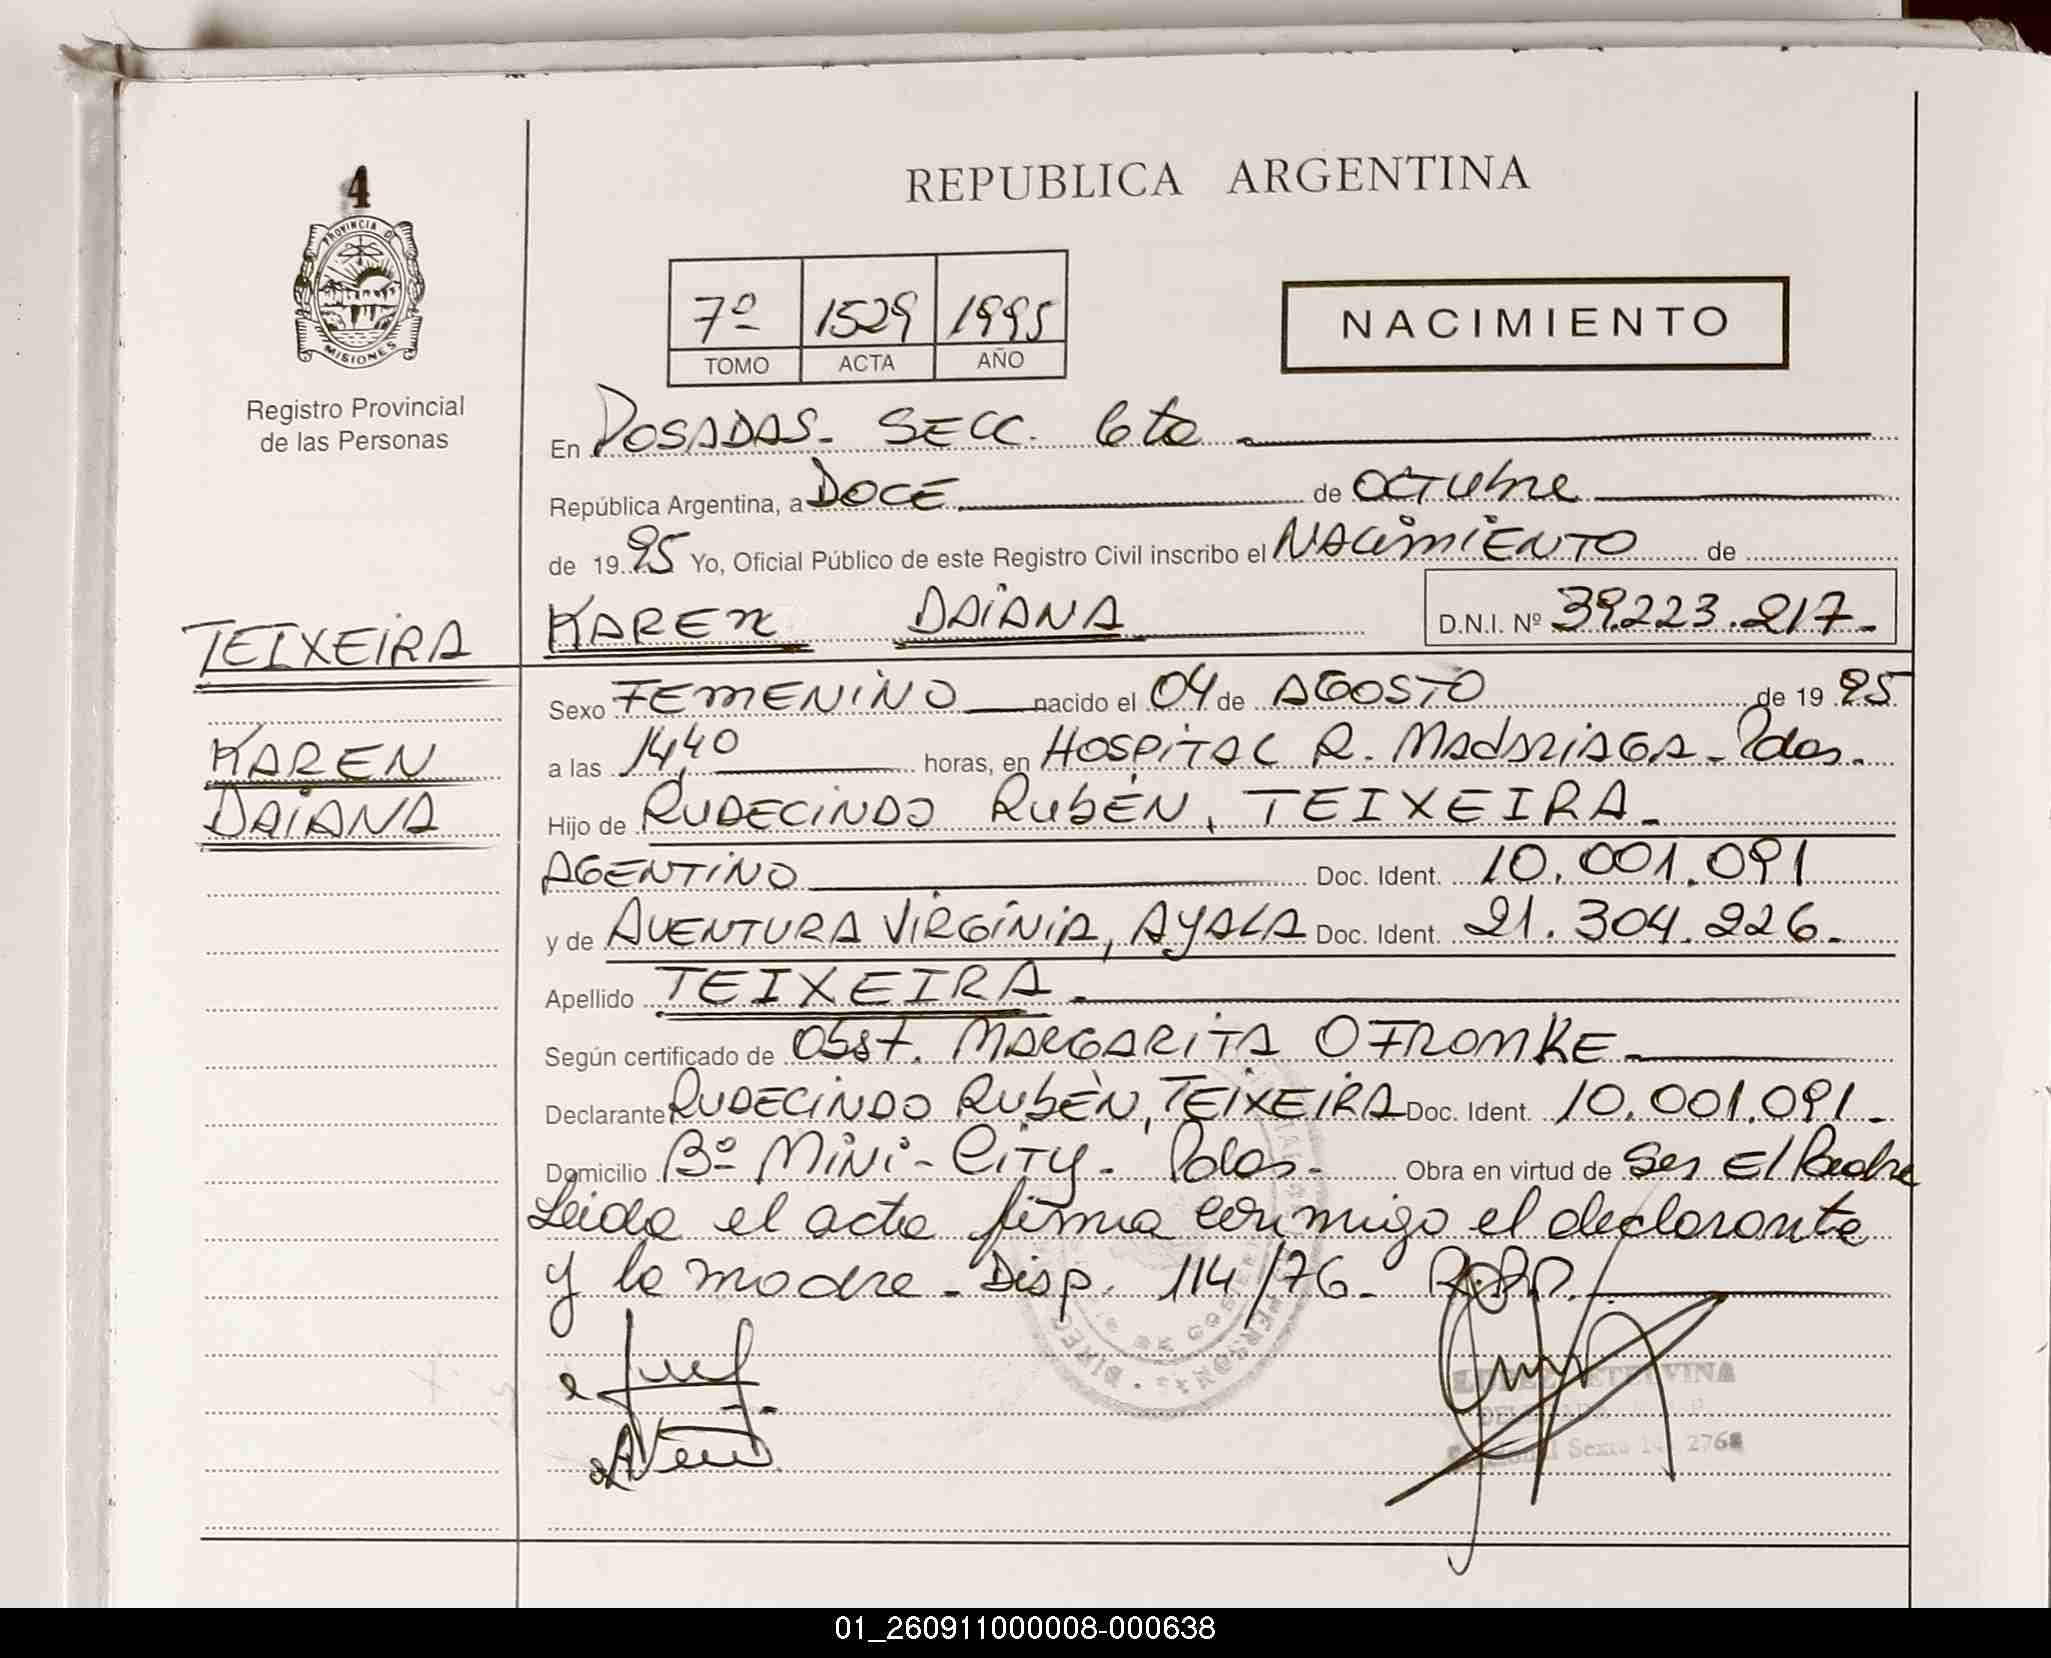 4
REPUBLICA ARGENTINA
PROVINCIA DE
MISIONES
Registro Provincial
de las Personas
7º 1529 1995
TOMO ACTA AÑO
NACIMIENTO
En POSADAS - SECC. 6ta
República Argentina, a DOCE de OCTUbre
de 1995 Yo, Oficial Público de este Registro Civil inscribo el NACIMIENTO de
KAREN DAIANA D.N.I. Nº 39.223.217.-
TEIXEIRA
KAREN
DAIANA
Sexo FEMENINO nacido el 04 de AGOSTO de 1995
a las 14,40 horas, en HOSPITAL R. MADARIAGA - Pdas.
Hijo de RUDECINDO RUbÉN, TEIXEIRA.-
AGENTINO Doc. Ident. 10.001.091
y de AVENTURA VIRGINIA, AYALA Doc. Ident. 21.304.226.-
Apellido TEIXEIRA.-
Según certificado de Obst. MARGARITA OFROMKE.-
Declarante RUDECINDO RUbÈN, TEIXEIRA Doc. Ident. 10.001.091.-
Domicilio Bº MINI-CITY - Pdas.- Obra en virtud de Ser El Padre
Leida el acta firma conmigo el declarante
y la madre - Disp. 114/76 - R.P.P.
ETELVINA
Sexta 2768
01_260911000008-000638